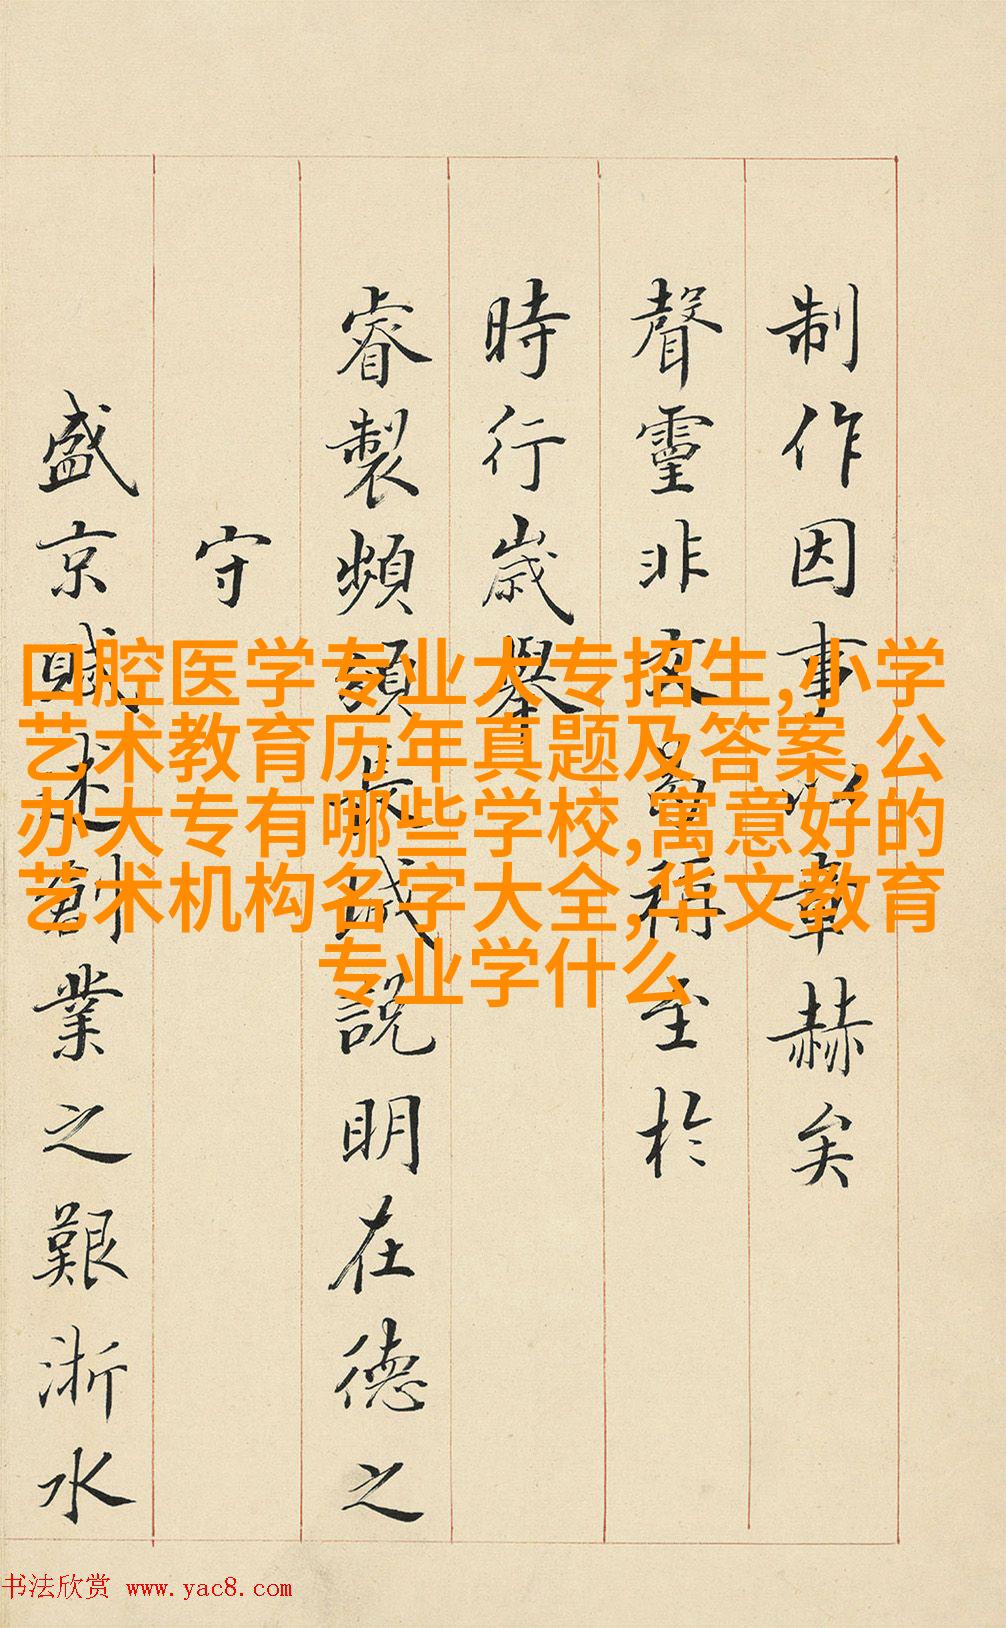 制作因事以章赫矣
聲靈非文曷稱至於
時行歲舉
睿製頻頒長城說明在德之
守
盛京賦述創業之艱浙水
口腔医学专业大专招生,小学
艺术教育历年真题及答案,公
办大专有哪些学校,寓意好的
艺术机构名字大全,华文教育
专业学什么
书法欣赏 www.yac8.com